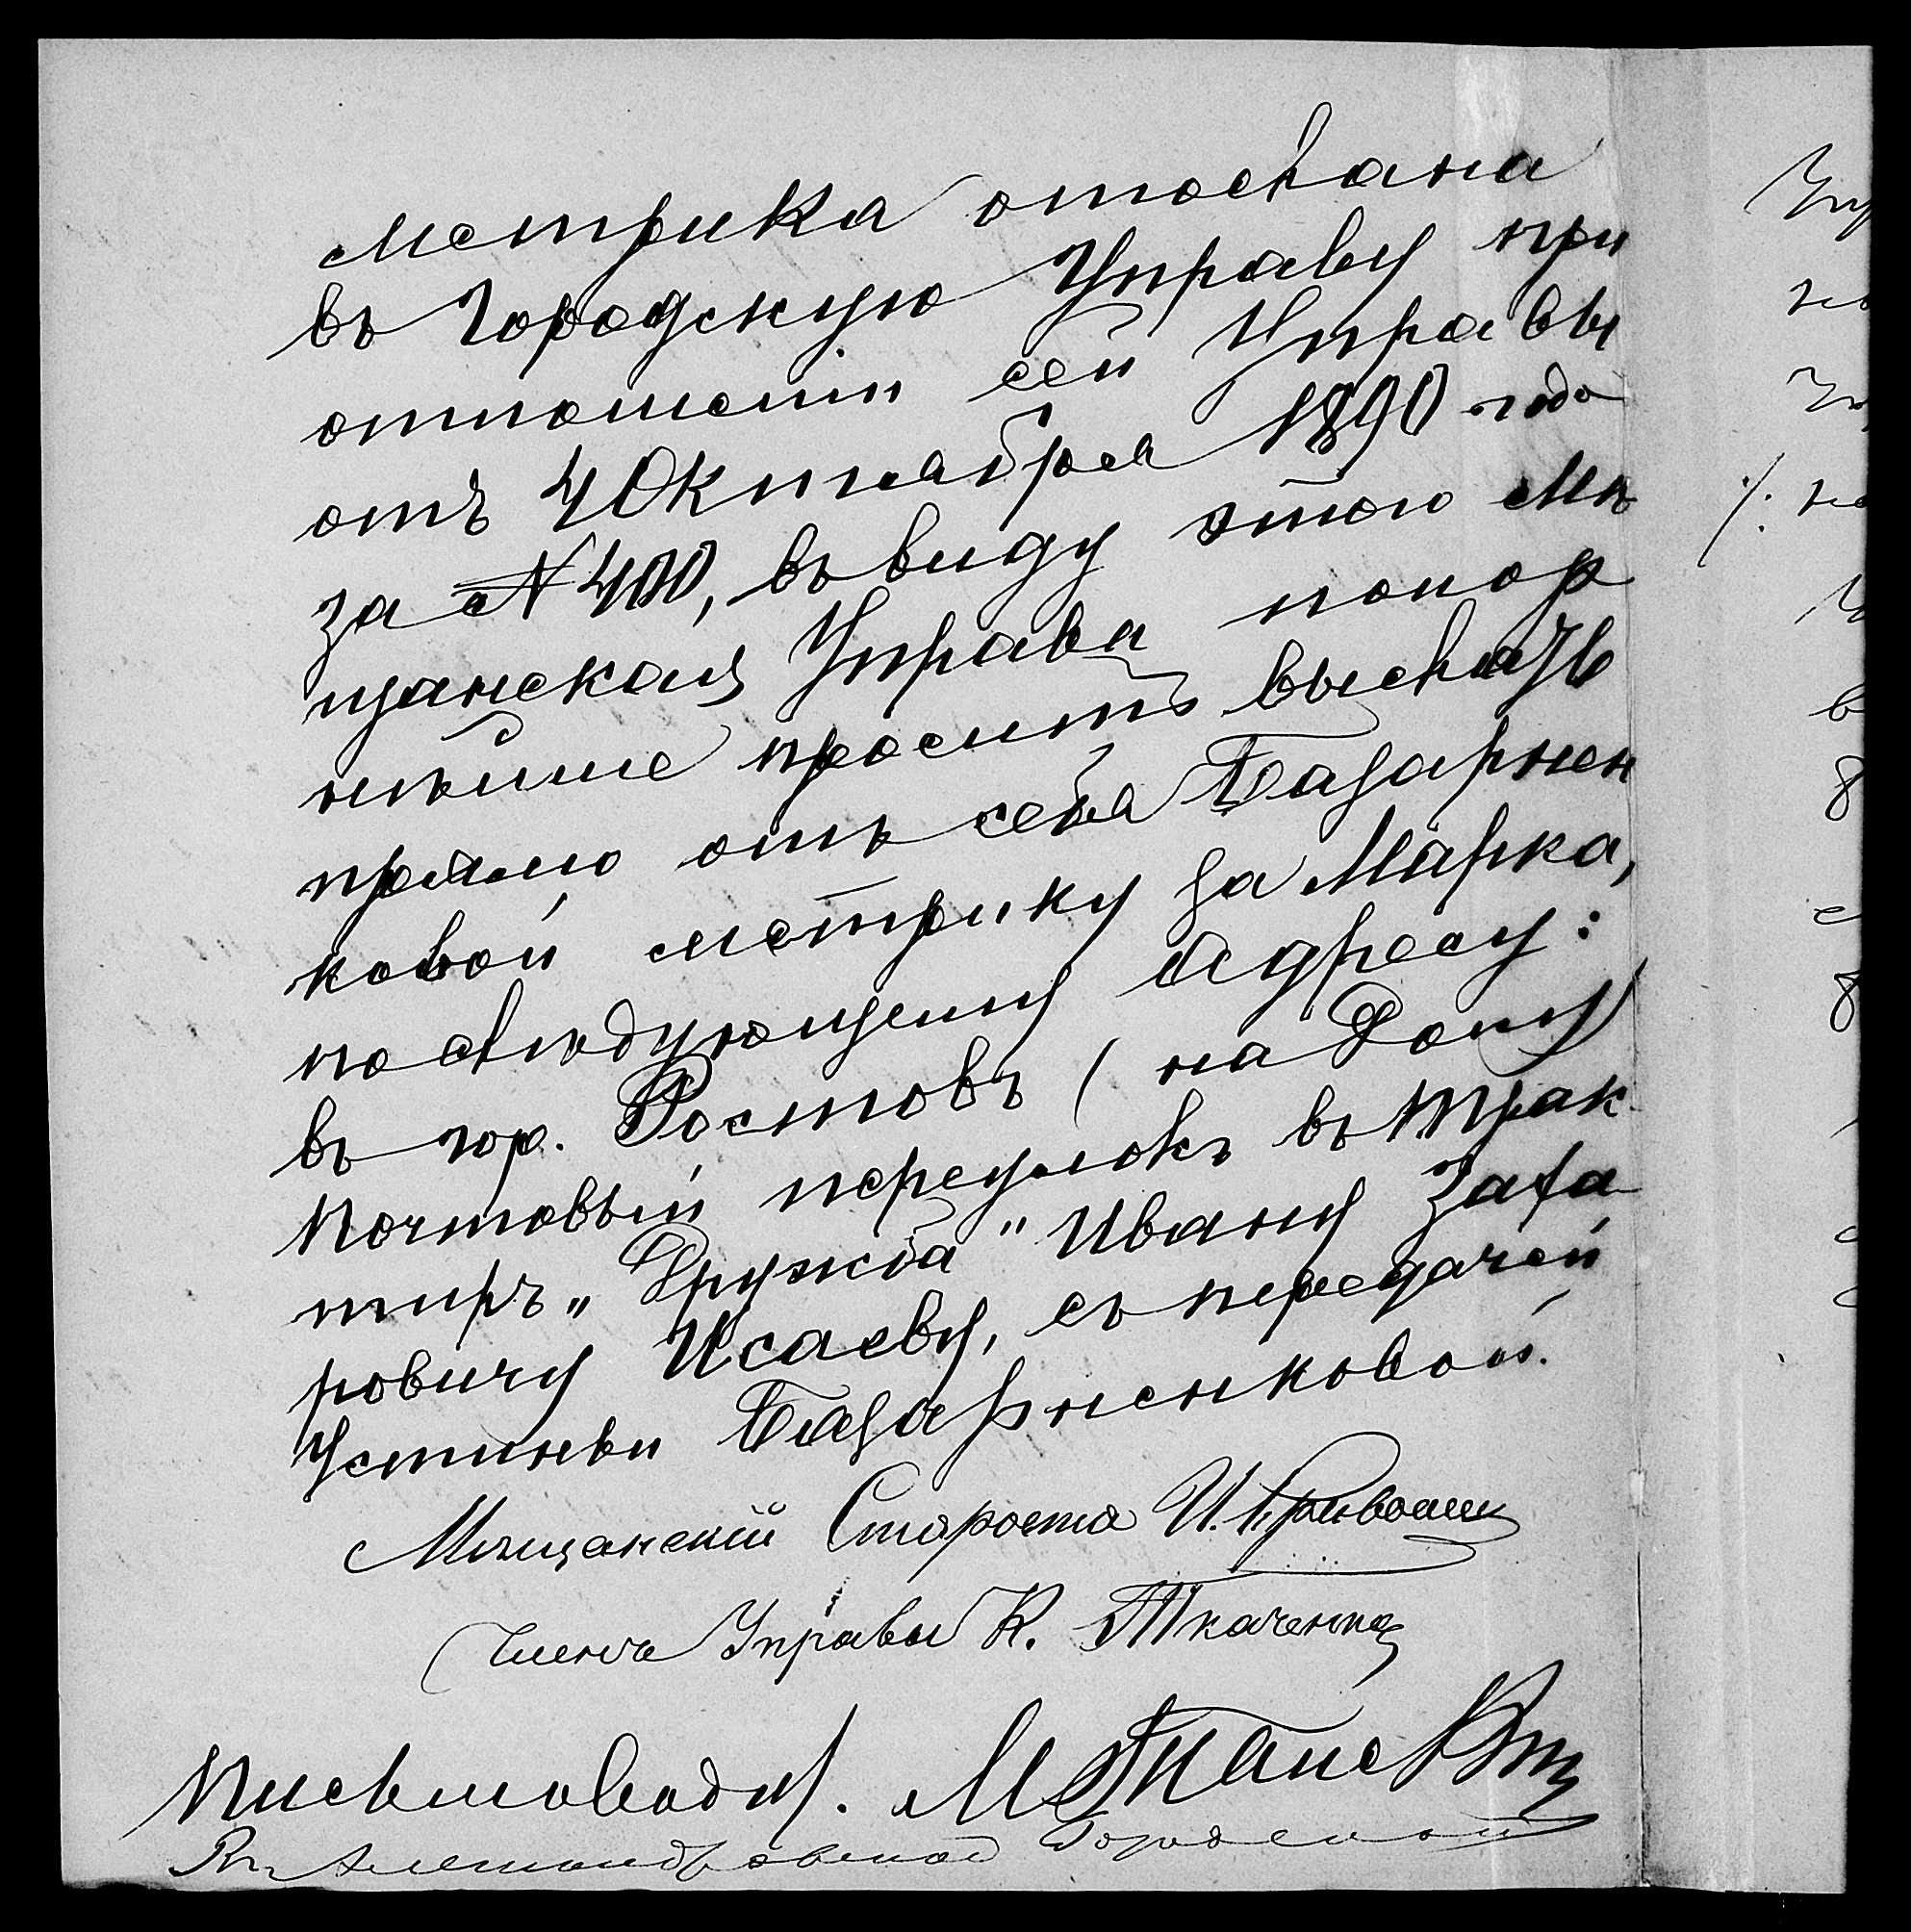 метрика отослана
въ Городскую Управу при
отношеніи сей Управы
отъ 4 Октября 1890 года
за № 400, въ виду этого Мѣ
щанская Управа покор
нѣйше проситъ выслать
прямо отъ себя Базарнен
ковой метрику за Марка,
по слѣдующему адресу:
въ гор. Ростовъ (на Дону)
Почтовый переулокъ въ трак
тиръ „Дружба" Ивану Заха
ровичу Исаеву, съ передачей
Устиньи Базарненковой.
Мѣщанскій Староста И.
Членъ Управы К. Ткаченко
Письмоводит. М.
Въ Александровской Городской